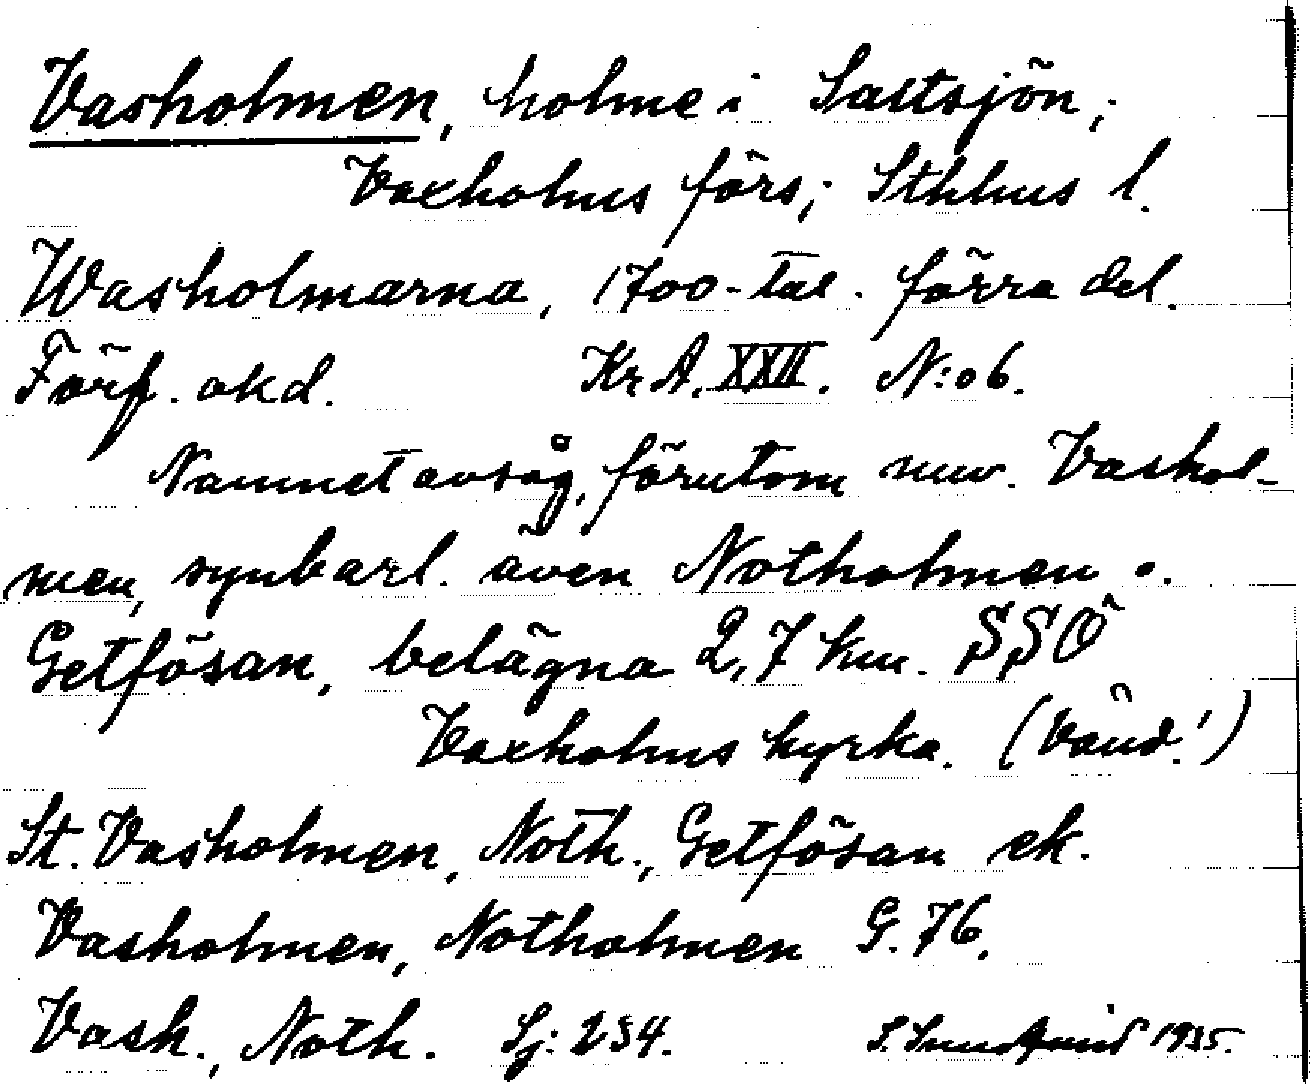 Vasholmen, holme i Saltsjön;
Vaxholms förs; Sthlms l.
Washolmarna, 1700-tal. förra del.
Förf. okd. Kr A. XXII. N:o 6.
Namnet avsåg, förutom nuv. Vashol-
men, synbarl. även Notholmen o.
Getfösan, belägna 2,7 km. SSÖ
Vaxholms kyrka. (Vänd!)
St. Vasholmen, Noth., Getfösan ek.
Vasholmen, Notholmen G. 76.
Vash., Noth. Sj: 234. S. Sundqvist 1935.